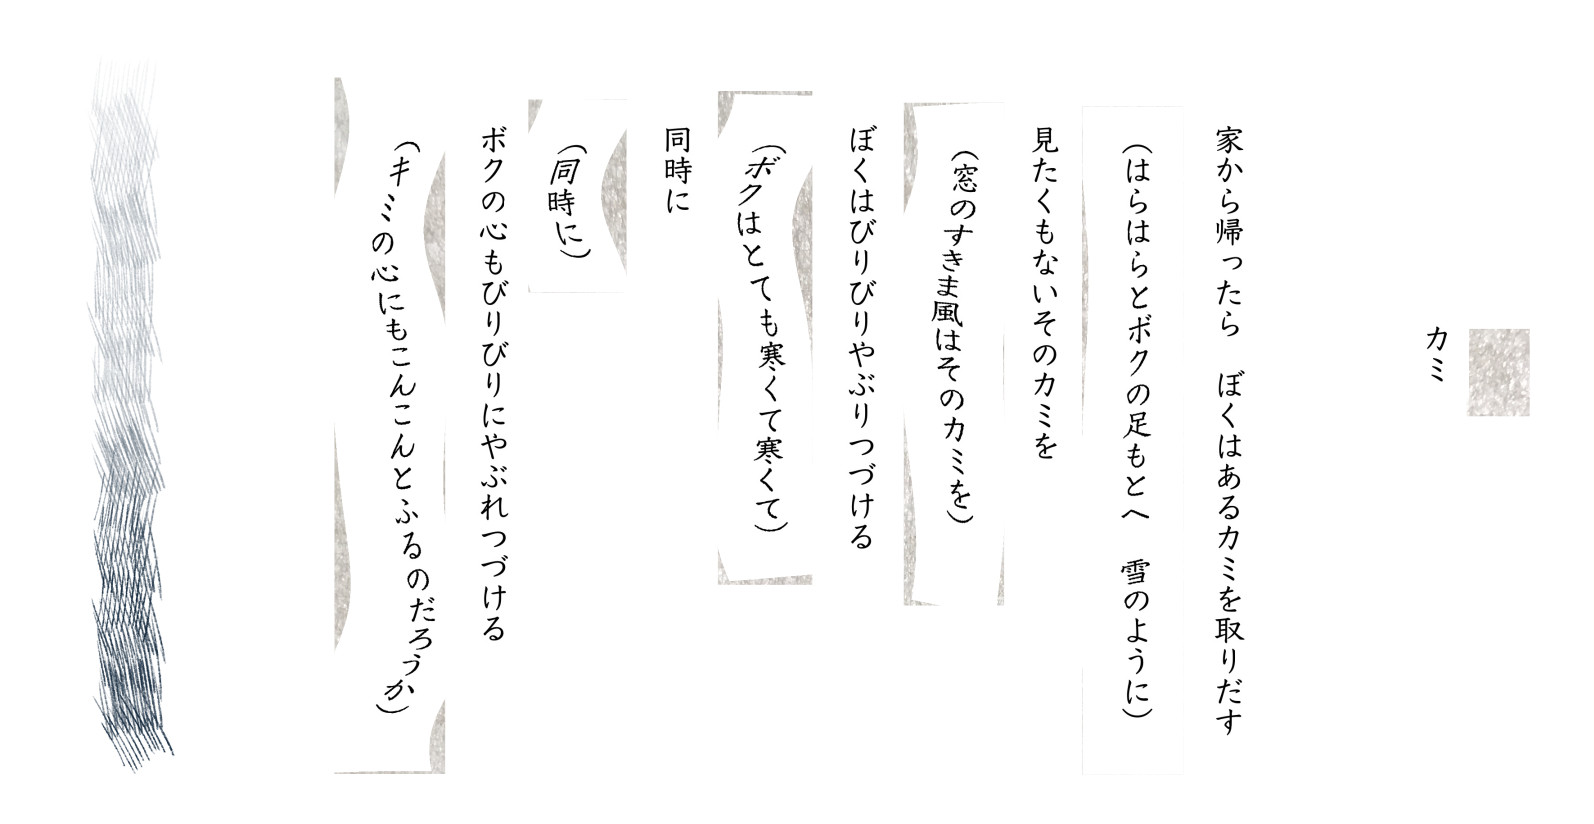 カミ
家から帰ったら　ぼくはあるカミを取りだす
（はらはらとボクの足もとへ　雪のように）
見たくもないそのカミを
（窓のすきま風はそのカミを）
ぼくはびりびりやぶりつづける
（ボクはとても寒くて寒くて）
同時に
（同時に）
ボクの心もびりびりにやぶれつづける
（キミの心にもこんこんとふるのだろうか）